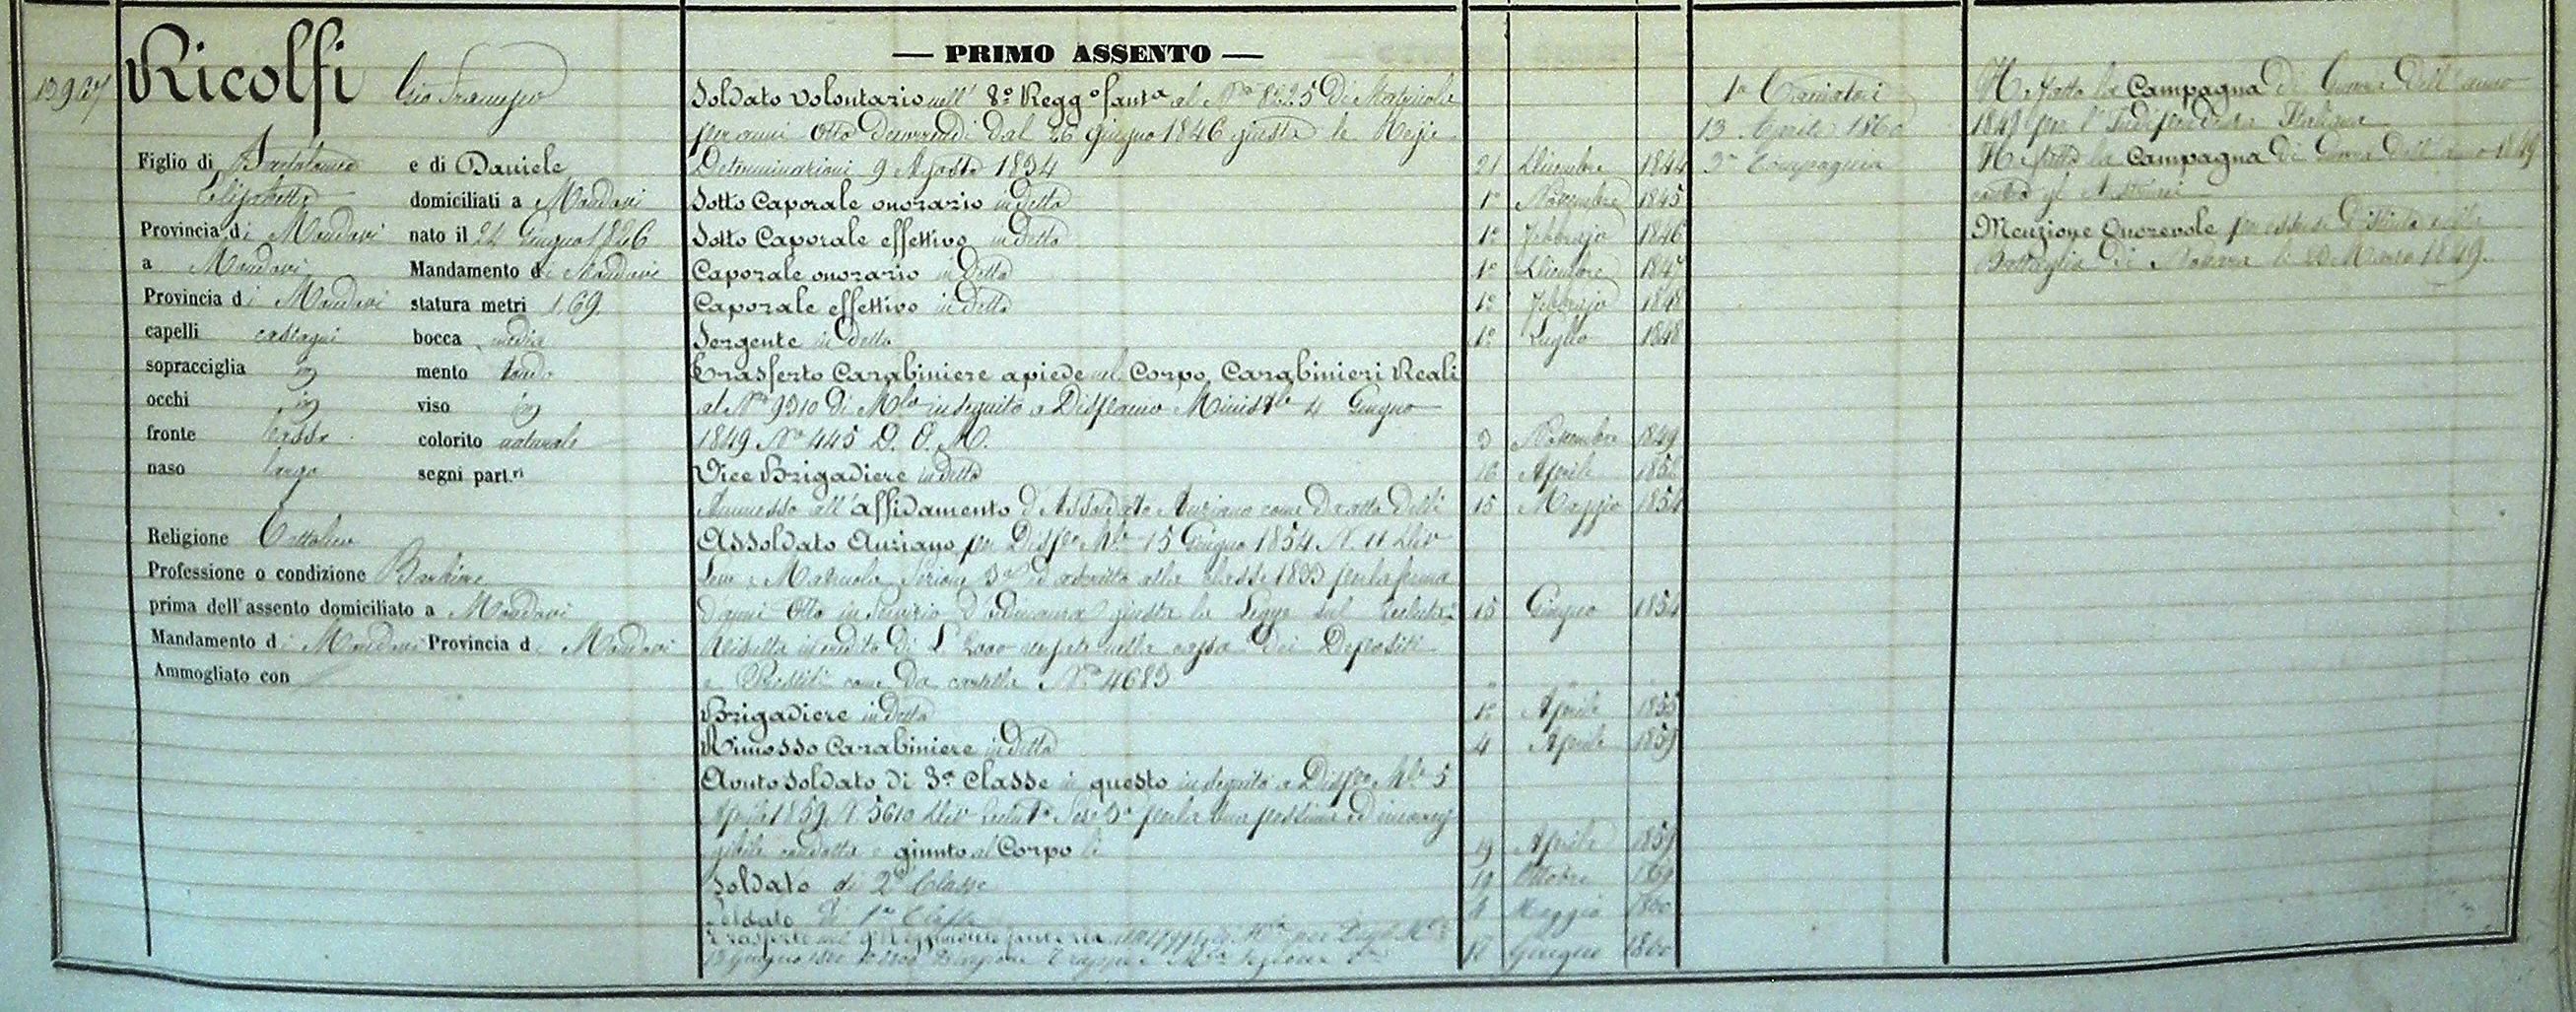 — PRIMO ASSENTO —
13927
Ricolfi Gio Francesco
Figlio di Bartolomeo e di Daniele
Elisabetta domiciliati a Mondovi
Provincia di Mondovi nato il 24 Giugno 1826
a Mondovi Mandamento di Mondovi
Provincia di Mondovi statura metri 1,69
capelli castagni bocca media
sopracciglia mento tondo
occhi viso
fronte bassa colorito naturale
naso largo segni part.ri
Religione Cattolica
Professione o condizione
prima dell'assento domiciliato a Mondovi
Mandamento di Mondovi Provincia di Mondovi
Ammogliato con
Soldato volontario nell' 8° Regg° fant.a al N° 8225 di Matricola
per anni Otto decorrendi dal 26 Giugno 1846 giusta le Regie
Determinazioni 9 Agosto 1834 21 Dicembre 1844
Sotto Caporale onorario in detto 1° Novembre 1845
Sotto Caporale effettivo in detto 1° Febbrajo 1846
Caporale onorario in detto 1° Dicembre 1847
Caporale effettivo in detto 1° Febbrajo 1848
Sergente in detto 1° Luglio 1848
Trasferto Carabiniere a piede nel Corpo Carabinieri Reali
al N° 9310 di M.la in seguito a Dispaccio Minist.le 4 Giugno
1849 N° 445 D. O. M. 3 Novembre 1849
Vice Brigadiere in detto 16 Aprile
Ammesso all'affidamento d'Assoldato Anziano come da atto delli 15 Maggio 1854
Assoldato Anziano per Disp° M.le 15 Giugno 1854 N. 11 Div
Leve e Matricola Sezione 3a ed ascritto alla classe 1833 per la ferma
d'anni Otto in servizio d'ordinanza giusta la Legge sul reclut.to 15 Giugno 1854
in credito di L 2000 versate nella cassa dei Depositi
e Prestiti come da cartella N° 4683
Brigadiere in detto 1° Aprile 1855
Rimosso Carabiniere in detto 4 Aprile 1859
Avuto soldato di 3a Classe in questo in seguito a Disp° M.le 5
Aprile 1859 N. 5610 Div per la sua pessima ed incorreg
gibile condotta e giunto al Corpo li 19 Aprile 1859
Soldato di 2a Classe 19 Ottobre
Soldato di 1a Classe Maggio 1860
Trasferto nel Reggimento fanteria
13 Giugno 1860 Giugno 1860
1a Cacciatori
13 Aprile 1860
3a Compagnia
Ha fatto la Campagna di Guerra dell'anno
per l'Indipendenza Italiana
Ha fatto la Campagna di Guerra dell'anno 1849
contro gl'Austriaci
Menzione onorevole per essersi distinto nella
Battaglia di Novara li 23 Marzo 1849.